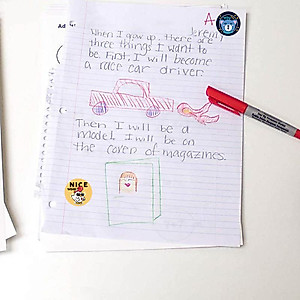 A
Jeremy
When I grow up, there are
three things I want to
be. First, I will become
a race car driver.
Then I will be a
model. I will be on
the cover of magazines.
NICE